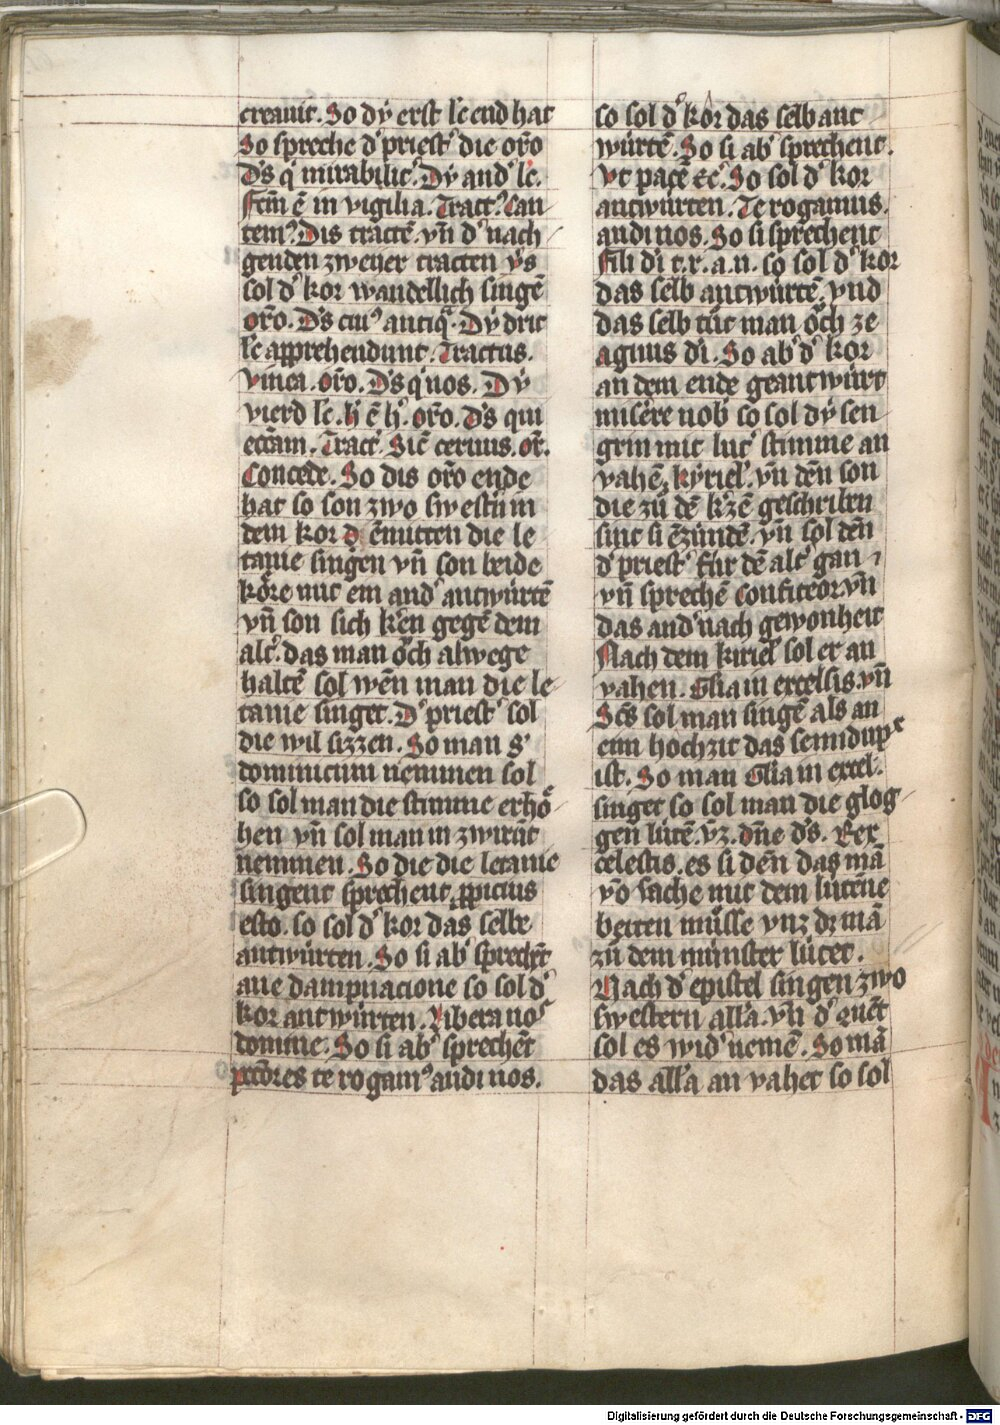 creauit. So dÿ erst lc̄ end hat
So spreche dˀ priestˀ die or̄o
D̄s qˀ mirabilitˀ. Dÿ andˀ lc̄.
Fcm̄ ē in vigilia. Tractˀ. Can
temˀ. Dis tractē. vn̄ dˀ nach
genden zwener tracten v̄s
sol dˀ kor wandellich singē
or̄o. D̄s cuiˀ antiq̄. Dÿ drit
lc̄ apprehendunt. Tractus.
vinea. or̄o. D̄s qˀ nos. Dÿ
vierd lc̄. h̄ ē hˀ. or̄o. D̄s qui
eccām. Tractˀ. Sic̄ ceruus. or̄.
Concede. So dis or̄o ende
hat so son zwo swestn̄ in
dem kor d ēmitten die le
tanie singen vn̄ son beide
kōre mit ein andˀ antwürtē
vn̄ son sich kēn gegē dem
altˀ. das man ōch alwege
haltē sol wēn man die le
tanie singet. Dˀ priestˀ sol
die wil sizzen. So man Sˀ
dominicum nemmen sol
so sol man die stimme erhō
hen vn̄ sol man in zwirūt
nemmen. So die die letanie
singent sprechent ꝓpicius
esto. so sol dˀ kor das selbe
antwürten. So si abˀ sprechēt
aue dampnacione so sol dˀ
kor antwürten. Libera noˢ
domine. So si abˀ sprechēt
pctōres te rogamˀ audi nos.
so sol dˀ kor das selb ant
würtē. So si abˀ sprechent.
vt pacē ⁊c̄. So sol dˀ kor
antwürten. Te rogamus.
audi nos. So si sprechent
fili di t. r. a. n. so sol dˀ kor
das selb antwürtē. vnd
das selb tūt man ōch ze
agnus di. So abˀ dˀ kor
an dem ende geantwürt
miserere nobˀ so sol dÿ sen
grin mit lutˀ stimme an
vahē. kÿrielˀ. vn̄ dēn son
die zū dē k̄zē geschriben
sint si ēzündē. vn̄ sol dēn
dˀ priestˀ für dē altˀ gan
vn̄ sprechē confiteor. vn̄
das andˀ nach gewonheit
Nach dem kirielˀ sol er an
vahen. Glia in excelsis. vn̄
Sc̄s sol man singē als an
ein hochzit das semidupˣ
ist. So man Glia in excelˀ.
singet so sol man die glog
gen lütē. v̄z. dn̄e d̄s. Rex
celestis. es si dēn das mā
vo sache mit dem lütēne
beiten müsse vnz dz mā
zū dem münster lütet.
Nach dˀ epistel singen zwo
swestern all̄a. vn̄ dˀ quēt
sol es widˀ nemē. So mā
das all̄a an vahet so sol
Digitalisierung gefördert durch die Deutsche Forschungsgemeinschaft - DFG